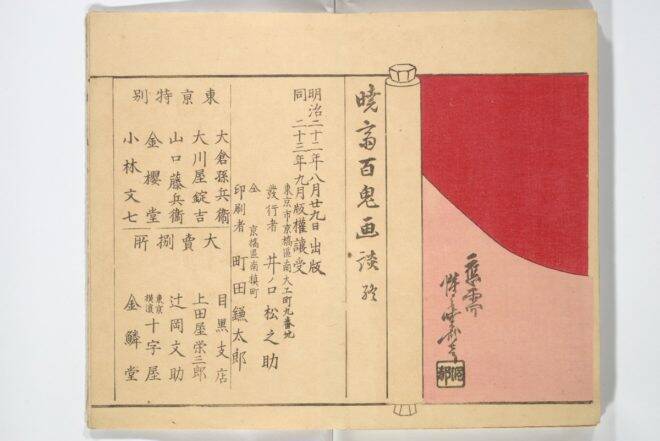 暁斎百鬼画談 終
明治二十二年八月廿九日出版
同 二十三年九月版權譲受
東京市京橋區南大工町九番地
發行者 井ノ口松之助
仝 京橋區南槇町
印刷者 町田鎌太郎
東京特別
大賣捌所
大倉孫兵衛
大川屋錠吉
山口藤兵衛
金櫻堂
小林文七
目黒支店
上田屋栄三郎
辻岡文助
東京
横濱
十字屋
金鱗堂